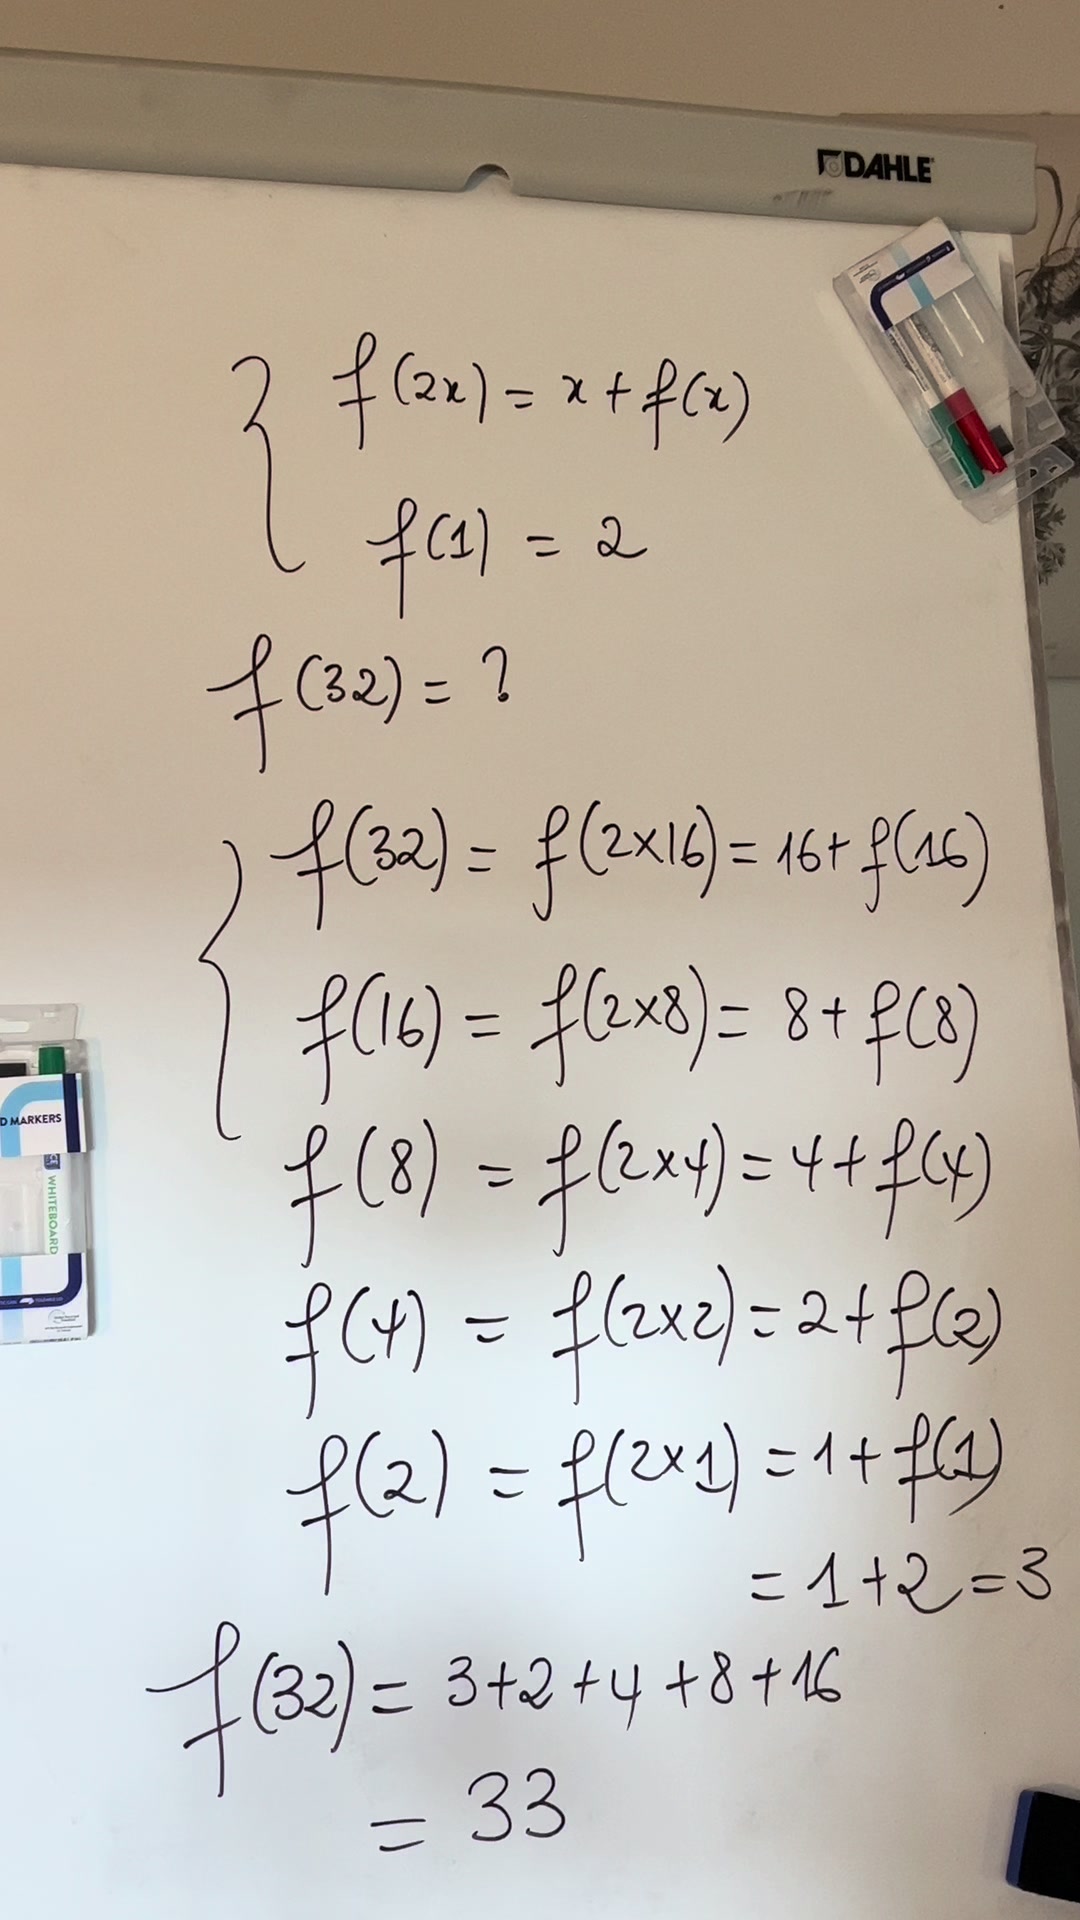 DAHLE
f(2x) = x + f(x)
f(1) = 2
f(32) = ?
f(32) = f(2×16) = 16 + f(16)
f(16) = f(2×8) = 8 + f(8)
f(8) = f(2×4) = 4 + f(4)
D MARKERS
WHITEBOARD
f(4) = f(2×2) = 2 + f(2)
f(2) = f(2×1) = 1 + f(1)
= 1 + 2 = 3
f(32) = 3 + 2 + 4 + 8 + 16
= 33